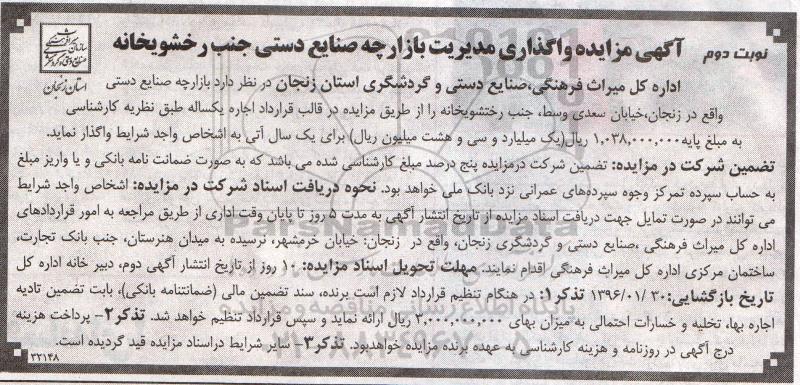 نوبت دوم
آگهی مزایده واگذاری مدیریت بازارچه صنایع دستی جنب رخشویخانه
استان زنجان
اداره کل میراث فرهنگی،صنایع دستی و گردشگری استان زنجان در نظر دارد بازارچه صنایع دستی
واقع در زنجان،خیابان سعدی وسط، جنب رختشویخانه را از طریق مزایده در قالب قرارداد اجاره یکساله طبق نظریه کارشناسی
به مبلغ پایه۱,۰۳۸,۰۰۰,۰۰۰ ریال(یک میلیارد و سی و هشت میلیون ریال) برای یک سال آتی به اشخاص واجد شرایط واگذار نماید.
تضمین شرکت در مزایده: تضمین شرکت درمزایده پنج درصد مبلغ کارشناسی شده می باشد که به صورت ضمانت نامه بانکی و یا واریز مبلغ
به حساب سپرده تمرکز وجوه سپرده‌های عمرانی نزد بانک ملی خواهد بود. نحوه دریافت اسناد شرکت در مزایده: اشخاص واجد شرایط
می توانند در صورت تمایل جهت دریافت اسناد مزایده از تاریخ انتشار آگهی به مدت ۵ روز تا پایان وقت اداری از طریق مراجعه به امور قراردادهای
اداره کل میراث فرهنگی ،صنایع دستی و گردشگری زنجان، واقع در زنجان: خیابان خرمشهر، نرسیده به میدان هنرستان، جنب بانک تجارت،
ساختمان مرکزی اداره کل میراث فرهنگی اقدام نمایند. مهلت تحویل اسناد مزایده: ۱۰ روز از تاریخ انتشار آگهی دوم، دبیر خانه اداره کل
تاریخ بازگشایی: ۱۳۹۶/۰۱/۳۰ تذکر۱: در هنگام تنظیم قرارداد لازم است برنده، سند تضمین مالی (ضمانتنامه بانکی)، بابت تضمین تادیه
اجاره بها، تخلیه و خسارات احتمالی به میزان بهای ۲,۰۰۰,۰۰۰,۰۰۰ ریال ارائه نماید و سپس قرارداد تنظیم خواهد شد. تذکر۲- پرداخت هزینه
درج آگهی در روزنامه و هزینه کارشناسی به عهده برنده مزایده خواهدبود. تذکر۳- سایر شرایط دراسناد مزایده قید گردیده است.
۳۲۱۴۸
ParsNamadData